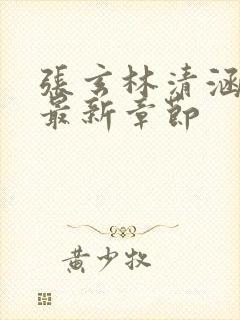 張玄林清涵
最新章節
黄少牧